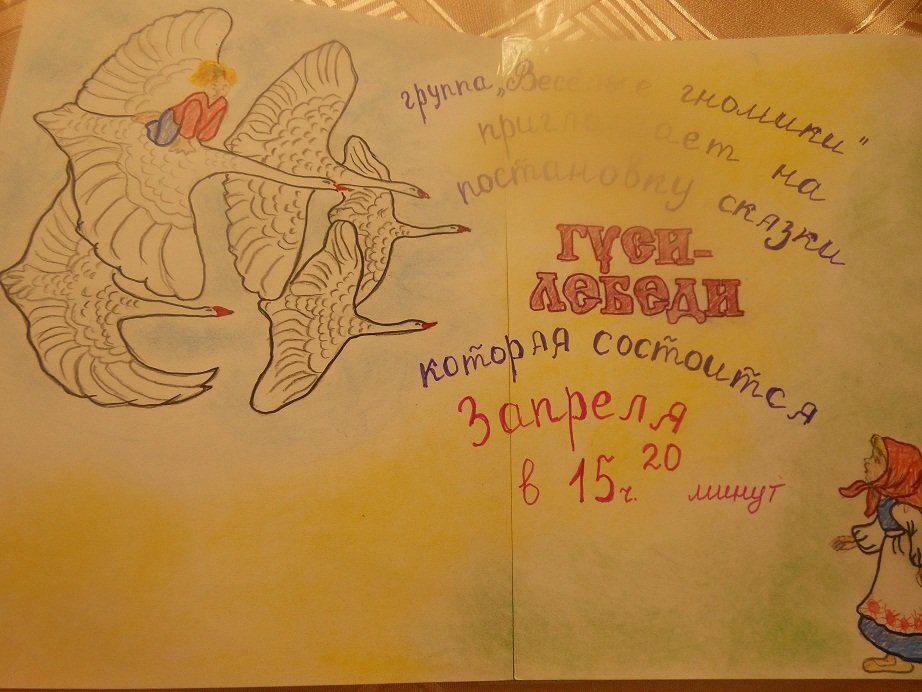 группа „Весёлые гномики"
приглашает на
постановку сказки
ГУСИ-
ЛЕБЕДИ
которая состоится
3 апреля
в 15ч. 20 минут